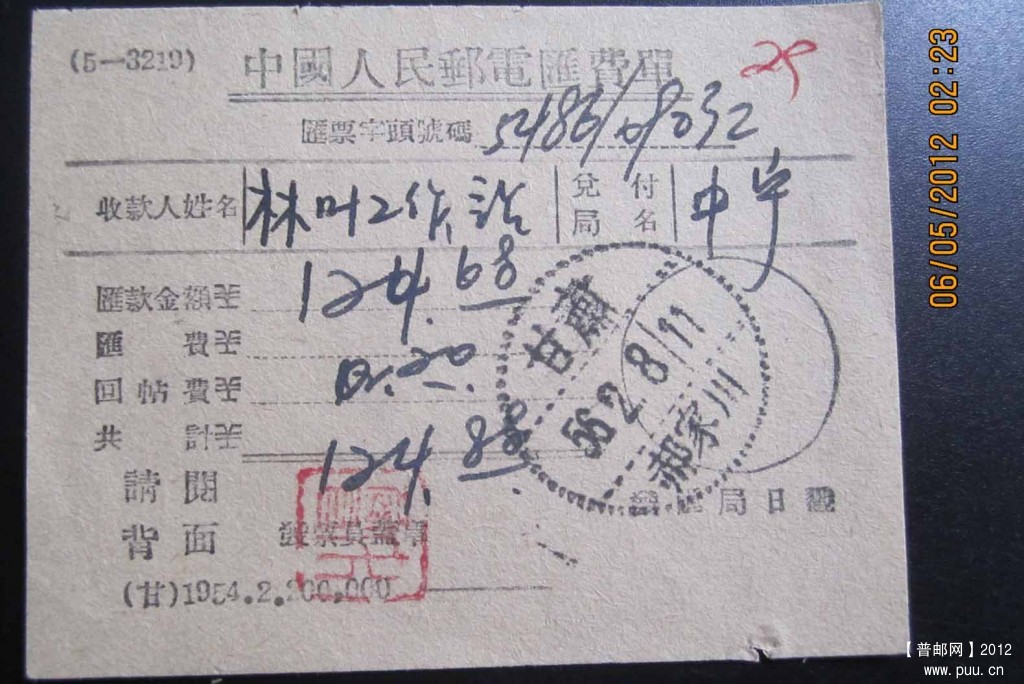 (5—3219) 中國人民郵電匯費單
匯票字頭號碼
收款人姓名 林叶工作站 兌付局名 中宁
匯款金額 124.68
匯費 0.20
回帖費
共計 124.88
甘肅
56.2.8/11
郝家川
請閱
背面
局日戳
(甘)1954.2.200,000
06/05/2012 02:23
【普邮网】2012
www.puu.cn